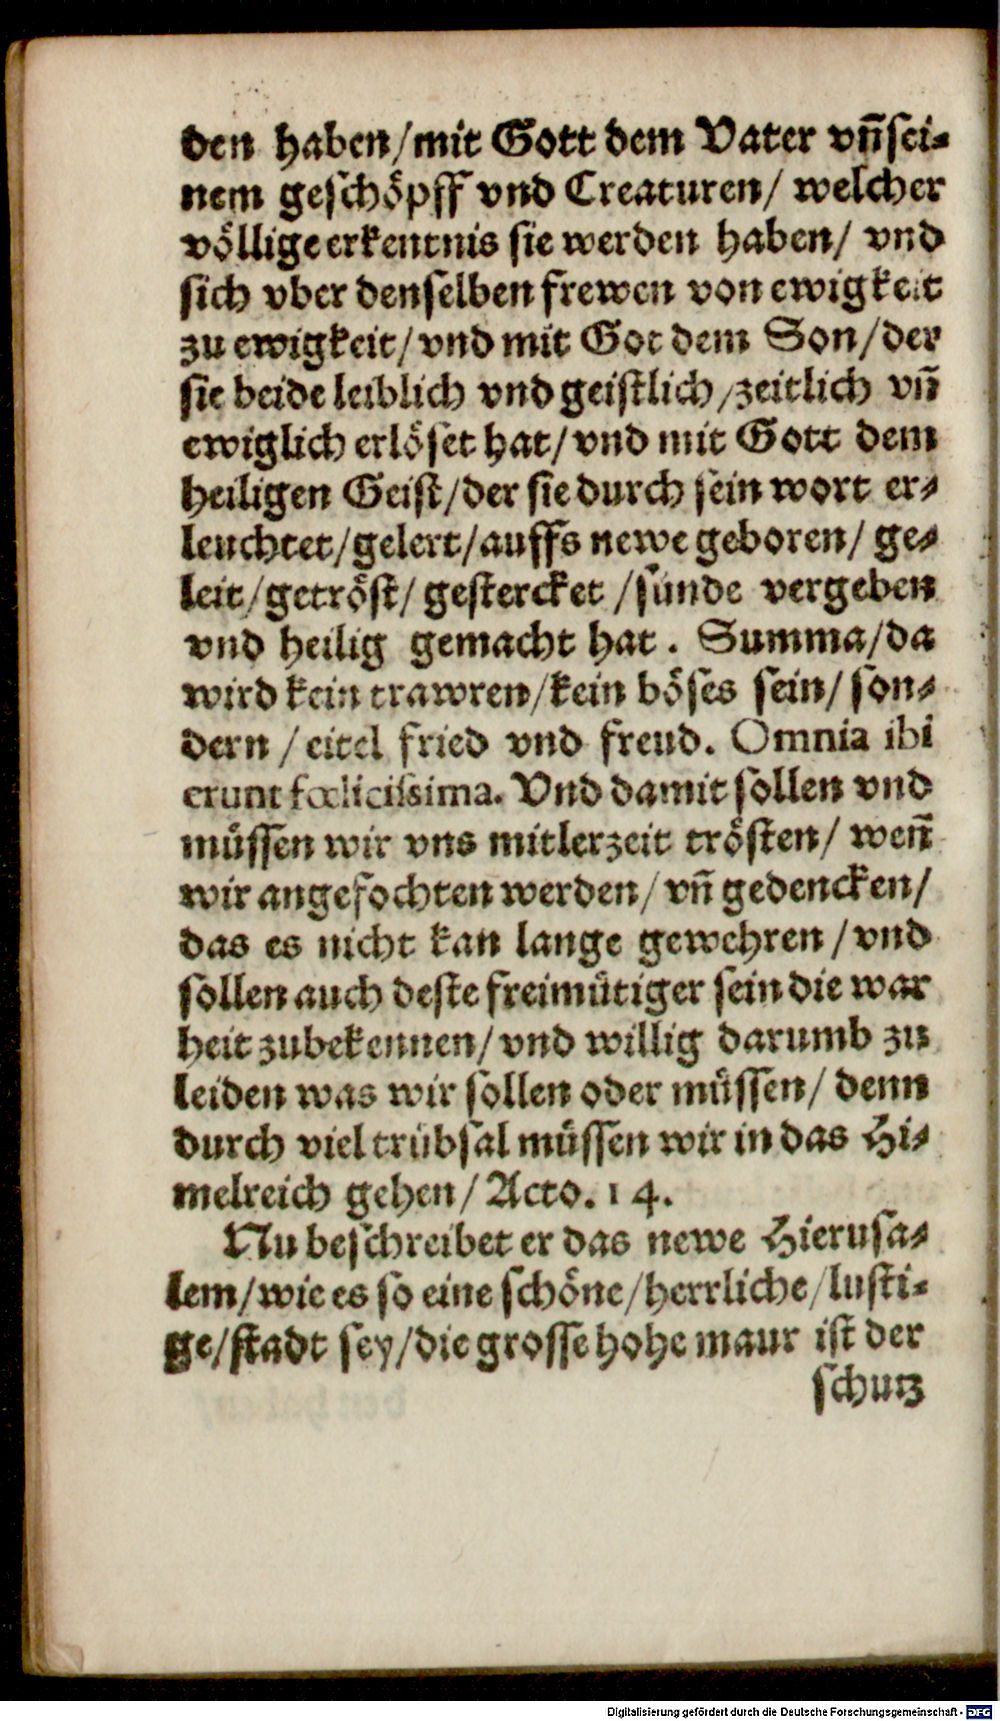 den haben/mit Gott dem Vater vn̄ sei-
nem geschöpff vnd Creaturen/ welcher
völlige erkentnis sie werden haben/ vnd
sich vber denselben frewen von ewigkeit
zu ewigkeit/ vnd mit Got dem Son/der
sie beide leiblich vnd geistlich/zeitlich vn̄
ewiglich erlöset hat/ vnd mit Gott dem
heiligen Geist/der sie durch sein wort er-
leuchtet/gelert/auffs newe geboren/ ge-
leit/getröst/ gestercket /sünde vergeben
vnd heilig gemacht hat. Summa/da
wird kein trawren/kein böses sein/ son-
dern /eitel fried vnd freud. Omnia ibi
erunt fœlicissima. Vnd damit sollen vnd
müssen wir vns mitlerzeit trösten/ wen̄
wir angefochten werden/ vn̄ gedencken/
das es nicht kan lange gewehren /vnd
sollen auch deste freimütiger sein die war
heit zubekennen/ vnd willig darumb zu
leiden was wir sollen oder müssen/ denn
durch viel trübsal müssen wir in das Hi-
melreich gehen/ Acto. 14.
Nu beschreibet er das newe Hierusa-
lem/wie es so eine schöne/herrliche/lusti-
ge/stadt sey/die grosse hohe maur ist der
schutz
Digitalisierung gefördert durch die Deutsche Forschungsgemeinschaft - DFG